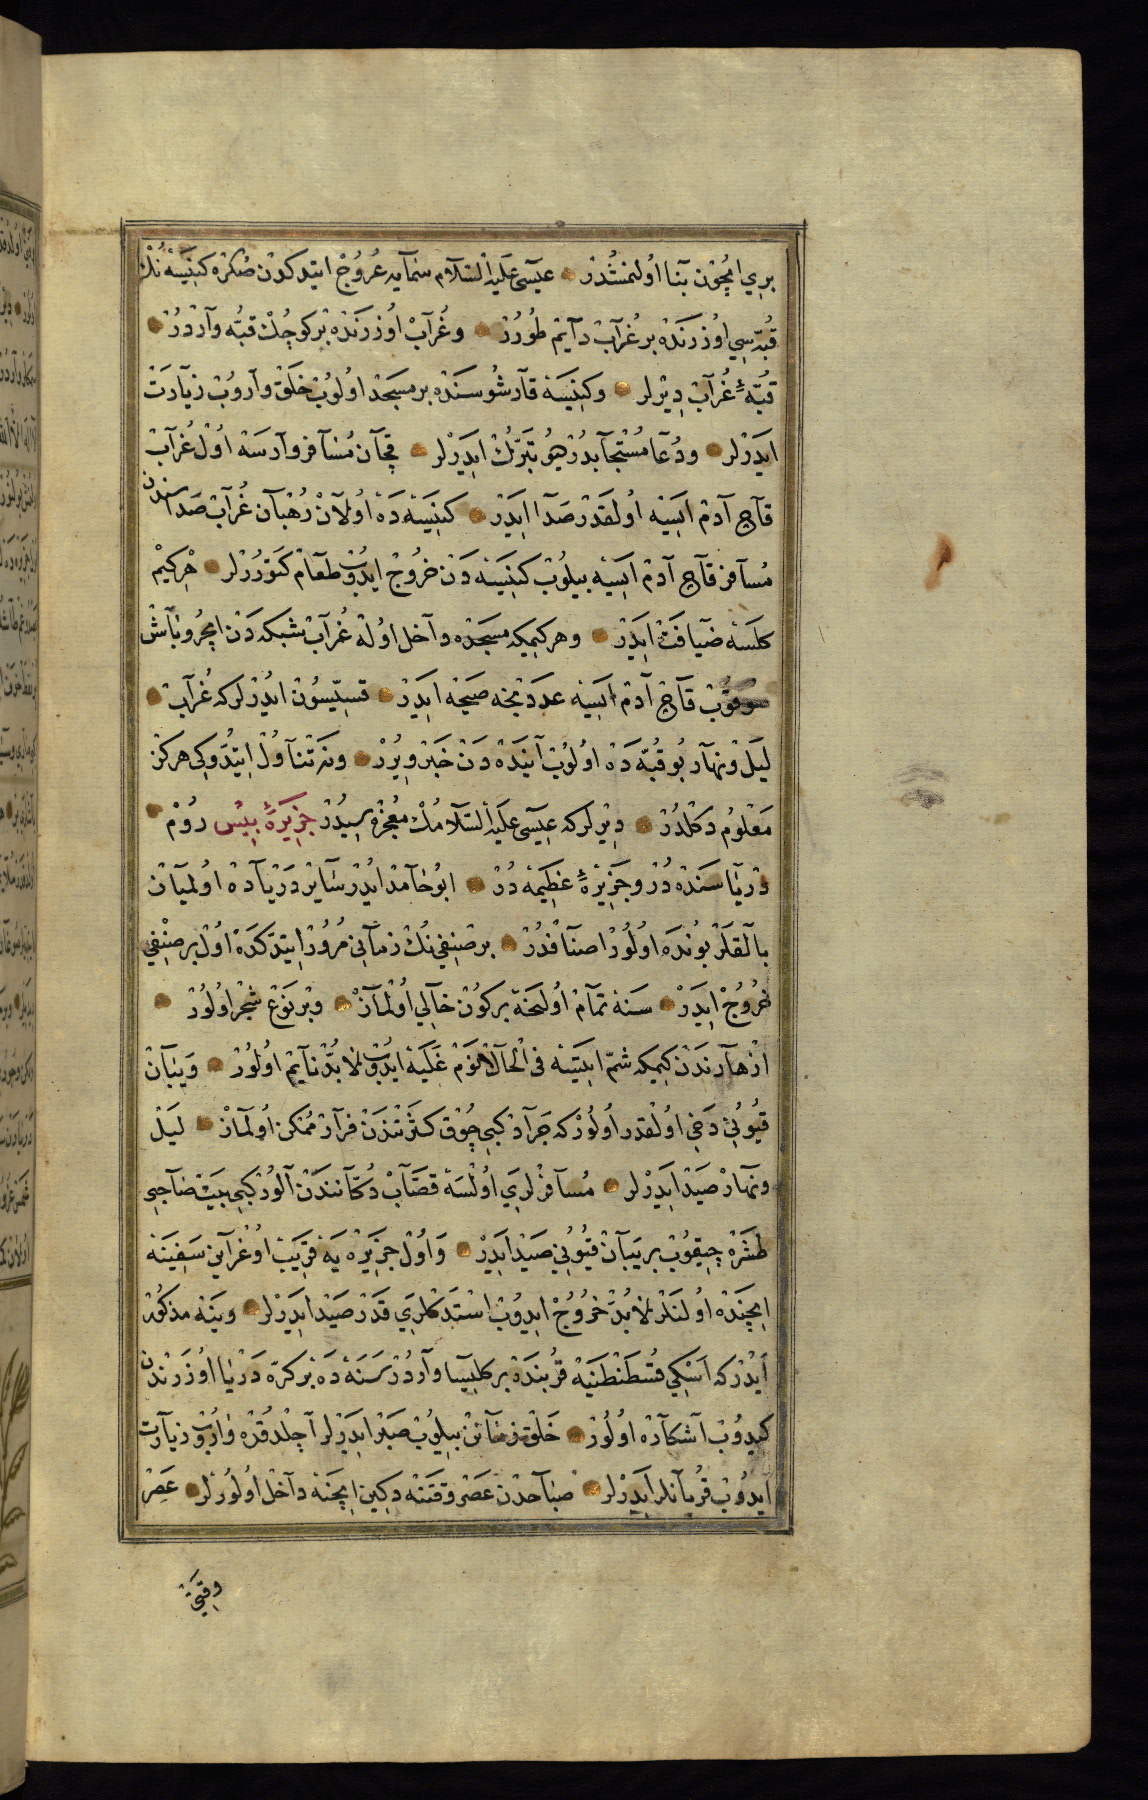 بِرِي اِيچُونْ بَنَا اُولِنْمِشْدُرْ عِيسَى عَلَيْهِ السَّلَامْ سَمَايَه عُرُوجْ ايتْدِكدَنْ صُكْرَه كَنِيسَه نُكْ
قُبَّه سِي اُوزَرِنْدَه بِرْ غُرَابْ دَآيِمْ طُورُرْ وغُرَابْ اُوزَرِنْدَه بِرْ كُوچُكْ قُبَّه وَارْدُرْ
قُبَّۀ غُرَابْ دِيرْلَر وكَنِيسَه قَارْشُوسَنْدَه بِرْ مَسجَدْ اُولُوبْ خَلْقْ وَارُوبْ زِيَارَتْ
ايدَرْلَر ودُعَا مُسْتَجَابدُرْ ديُو تَبَرُّكْ ايدَرْلَر قَچَانْ مُسَافِرْ وَارْسَه اُولْ غُرَابْ
قَاچ آدَمْ ايسَه اُولْقَدَرْ صَدَا ايدَرْ كَنِيسَه دَه اُولَانْ رُهْبَانْ غُرَابْ صَدَاسِنْدَنْ
مُسَافِرْ قَاچ آدَمْ ايسَه بِيلُوبْ كَنِيسَه دَنْ خُرُوجْ ايدُوبْ طَعَامْ كَتُورُرْلَر هَرْكِيمْ
كلسَه ضِيَافَتْ ايدَرْ وهر كيمكه مسجده دَاخل اُولَه غُرَابْ شبكه دَنْ ايچَرو بَاشْ
صوقُوبْ قَاچ آدَمْ ايسَه عددنجه صيحه ايدَرْ قسيسُونْ ايدُرْلَركه غُرَابْ
لَيْل ونهَار بُو قُبَّه دَه اُولُوبْ آيَنْدَه دَنْ خَبَرْ وِيرُرْ ونَه تَنَاوُلْ ايتْدُوكِي هركز
مَعْلُومْ دكلْدُرْ دِيرْلَركه عِيسَى عَلَيْهِ السَّلَامُكْ مُعْجِزَه سِيدُرْ جَزِيرَۀ بِيْس رُومْ
دَرْيَاسَنْدَه دُرْ وجَزِيرَۀ عَظِيمَه دُرْ ابُو حَامدْ ايدُرْ سَايرْ دَرْيَادَه اُولميَانْ
بَالقلَرْ بُونْدَه اُولُورْ اصنَافدُرْ بر صِنِفِي نُكْ زمَانِي مُرُورْ ايتْدكدَه اُولْ بِرْ صِنْفِي
خُرُوجْ ايدَرْ سَنَه تَمَامْ اُولنجَه بركُونْ خَالِي اُولْمَازْ وبرنَوْعْ شَجَرْ اُولُورْ
ازْهَارِنْدَنْ كِيمكه شَمّ ايتسَه فى الْحَالْ نَوْمْ غَلَبَه ايدُوبْ لَابُدْ نَايمْ اُولُورْ وَيَبَانْ
قيُونِي دَخِي اُولْقَدَر اُولُورْكه جَرَادْ كبِي چُوقْ كثرَتنْدَنْ فِرَارْ مُمْكن اُولْمَازْ لَيْل
ونهَارْ صَيْدْ ايدَرْلَر مُسَافِرْلَرِي اُولْسَه قصَّابْ دُكَانندَنْ آلُورْ كبِي بيت صَاحبِي
طَشَرَه چِيقُوبْ بريَبَانْ قيُونِي صَيْدْ ايدَرْ وَاُولْ جزِيرَه يَه قَرِيبْ اُوغرَايَنْ سَفِينَه
ايچنده اُولنلَرْ لَابُدْ خُرُوجْ ايدُوبْ استَدكلرِي قَدَرْ صَيْدْ ايدَرْلَر وينَه مذكُورْ
ايدُرْكه اَسْكِي قُسطَنْطَنِيَه قُربنْدَه بر كليسَا وَاردُرْ سَنَه دَه بِرْ كَرّه دَرْيَا اُوزَرِنْدَنْ
كيدُوبْ آشكَارَه اُولُورْ خَلْق زمَاننْ بِيلُوبْ صَبْر ايدَرْلَر آچلْدقده وَارُوبْ زيَارتْ
ايدُوبْ قُربَانلَر ايدَرْلَر صبَاحدَنْ عَصْر وقتنه دكين ايچنَه دَاخل اُولُورلَر عَصِرْ
وقتِي